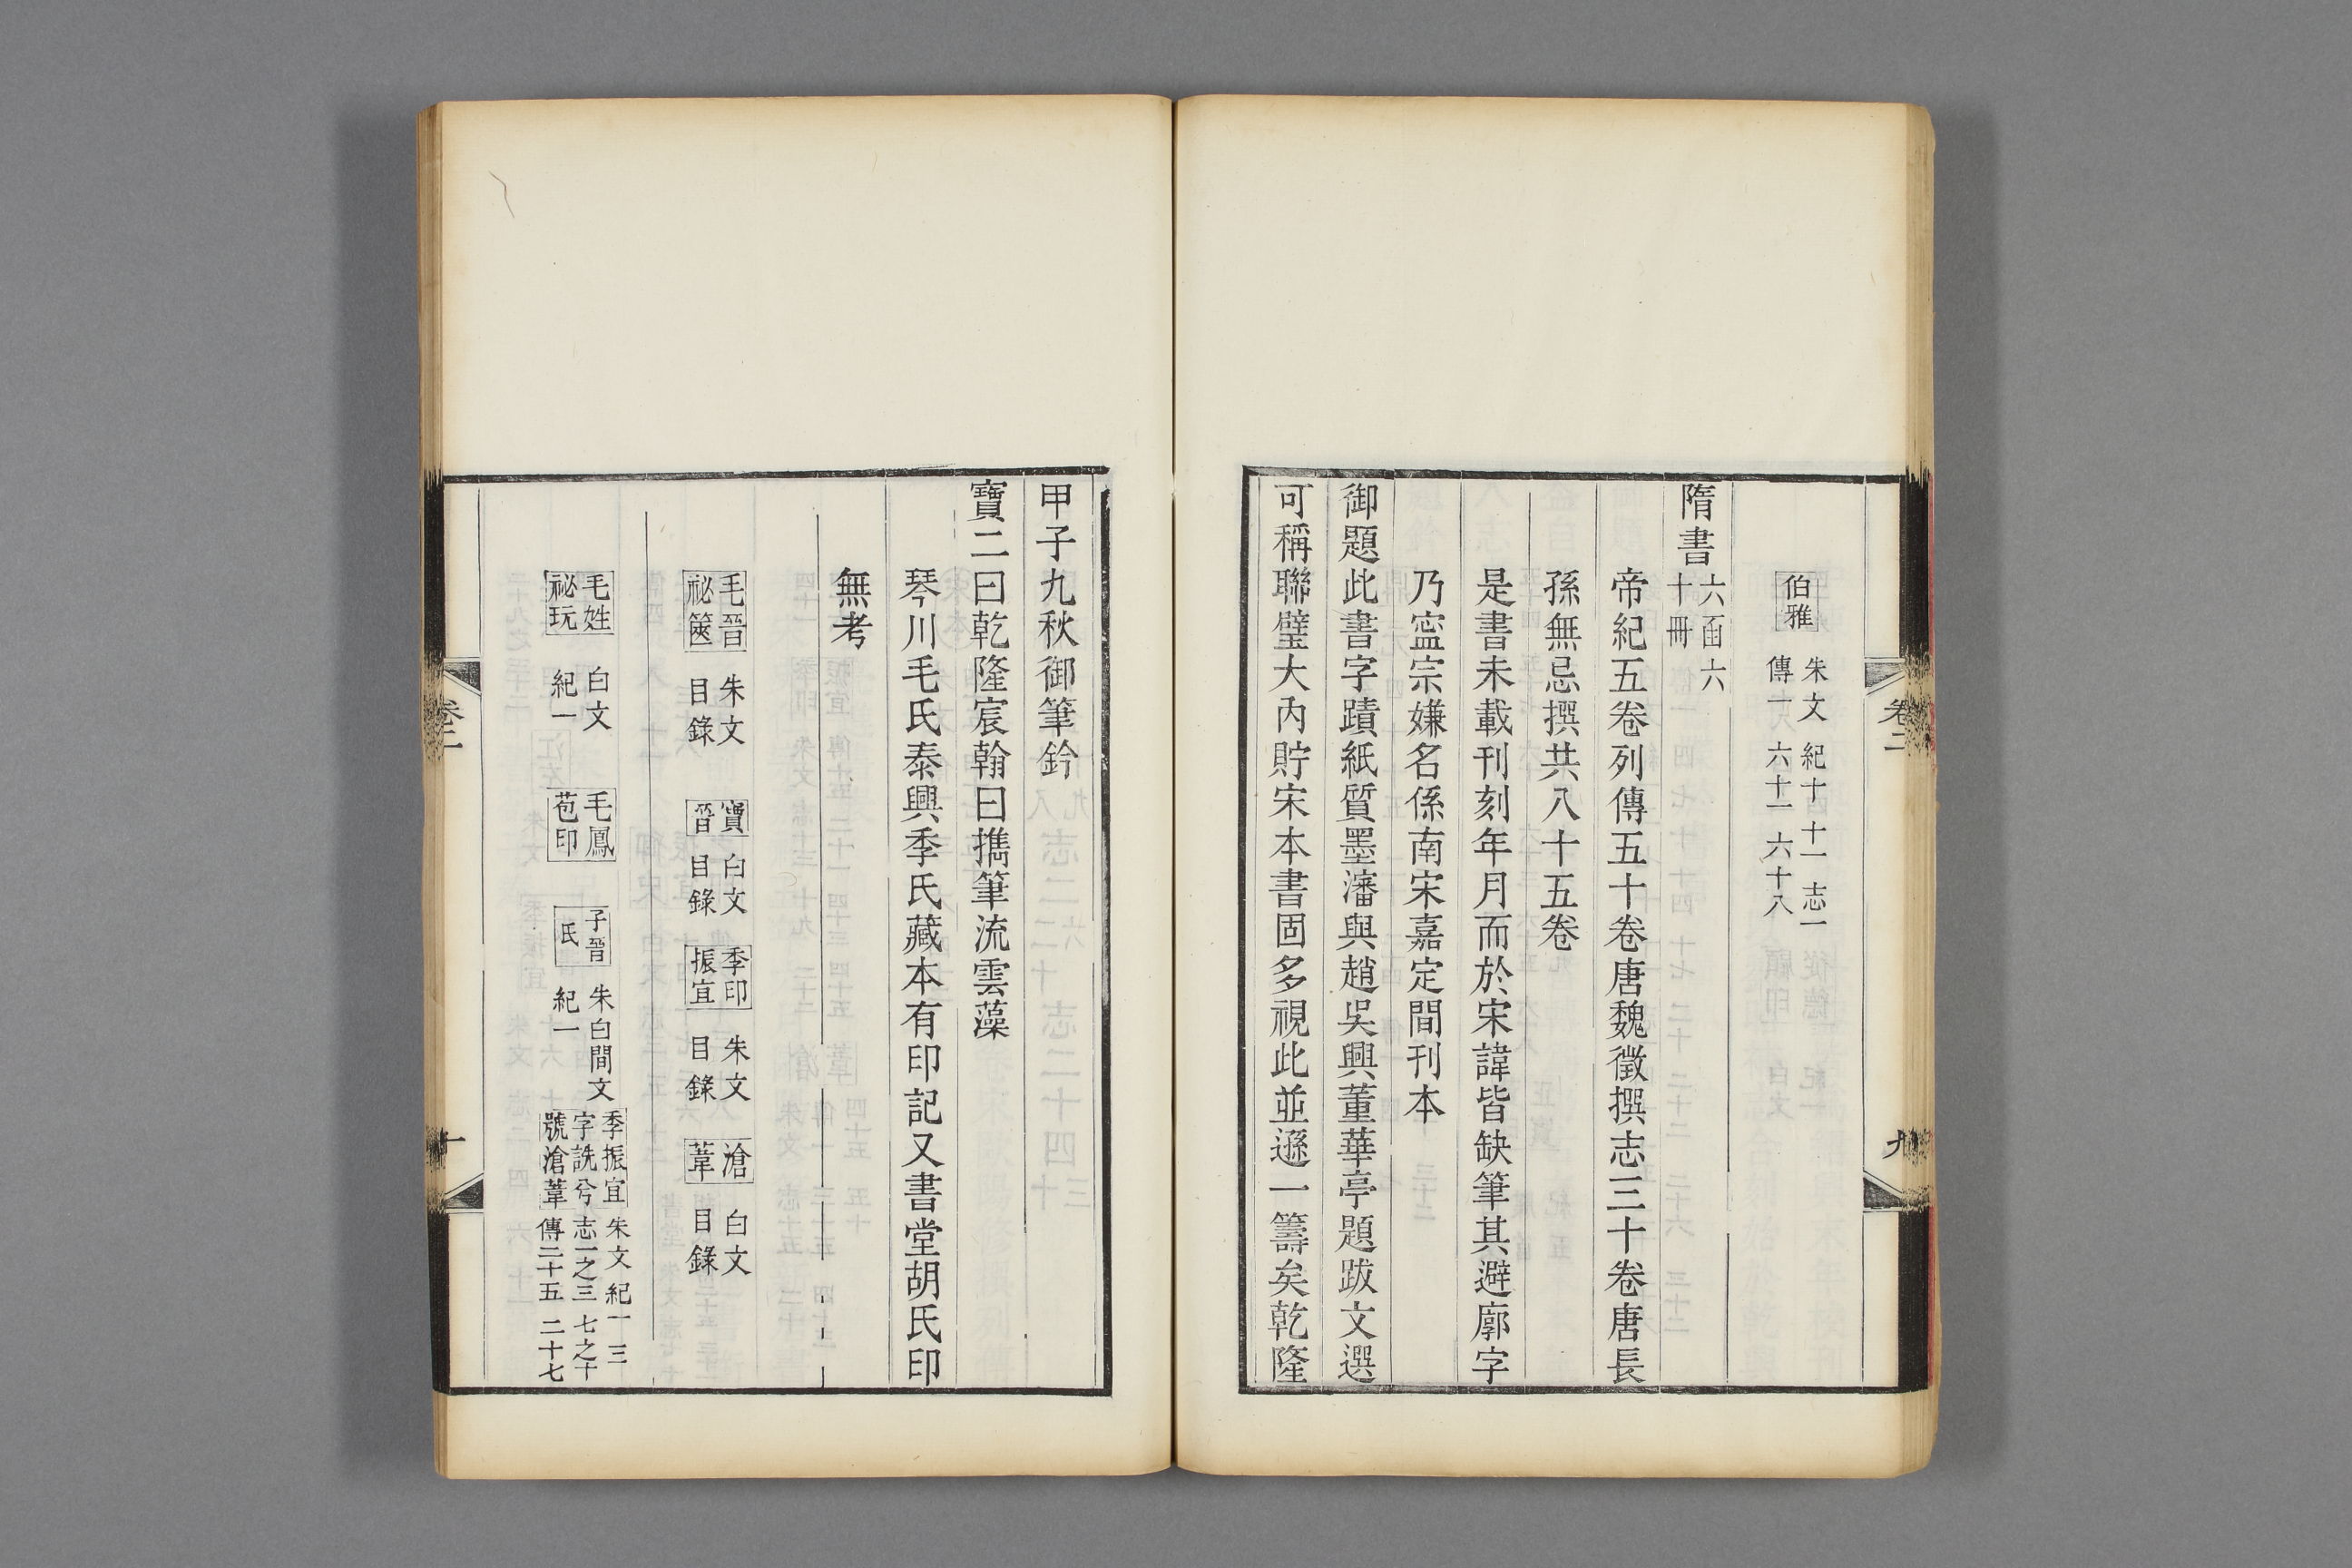 卷二
九
伯雅 朱文 紀十 十一 志一
傳一 六十一 六十八
隋書 六函 六
十冊
帝紀五卷列傳五十卷唐魏徵撰志三十卷唐長
孫無忌撰共八十五卷
是書未載刊刻年月而於宋諱皆缺筆其避廓字
乃寍宗嫌名係南宋嘉定間刊本
御題此書字蹟紙質墨瀋與趙吳興董華亭題跋文選
可稱聯璧大內貯宋本書固多視此並遜一籌矣乾隆
甲子九秋御筆鈐
寶二曰乾隆宸翰曰擕筆流雲藻
琴川毛氏泰興季氏藏本有印記又書堂胡氏印
無考
毛晉祕篋 朱文 目錄 寶晉 白文 目錄 季印振宜 朱文 目錄 滄葦 白文 目錄
毛姓祕玩 白文 紀一 毛鳳苞印 子晉氏 朱白間文 紀一 季振宜字詵兮號滄葦 朱文 紀一 三
志一之三 七之十
傳二十五 二十七
卷二
十